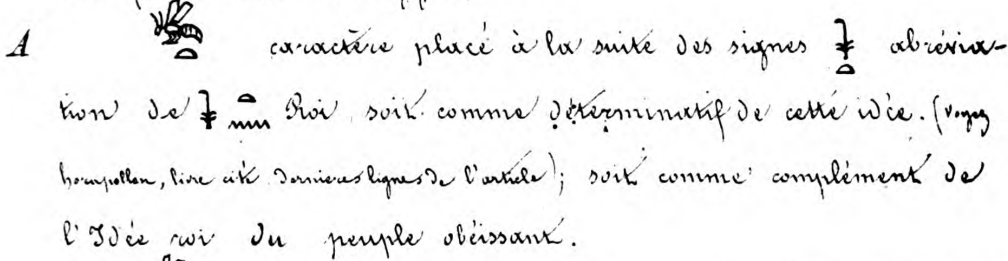 A 𓆤𓏏 caractère placé à la suite des signes 𓇓𓏏 abrévia-
tion de 𓇓𓏏𓈖 Roi, soit comme déterminatif de cette idée. (voyez
horapollon, livre cité dernieres lignes de l'article); soit comme complément de
l'Idée roi du peuple obéissant.